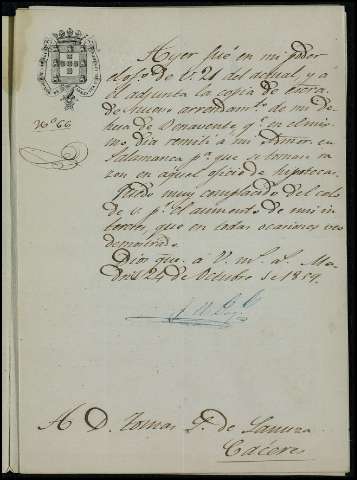 Nº 66
Ayer fué en mi poder
el of.º de V. 21 del actual, y á
él adjunta la copia de escra.
de Nuevo arrendam.to de mi de
hesa de Benavente q.e en el mis
mo dia remití a mi Admor en
Salamanca p.a que se tomase ra
zon en aquel oficio de hipotecas.
Quedo muy complacido del celo
de V. p.r el aumento de mis in
tereses, que en todas ocasiones veo
demostrado.
Dios gue. a V. m.s a.s Ma
drid 24 de Octubre de 1859.
A D. Tomas P. de
Cáceres